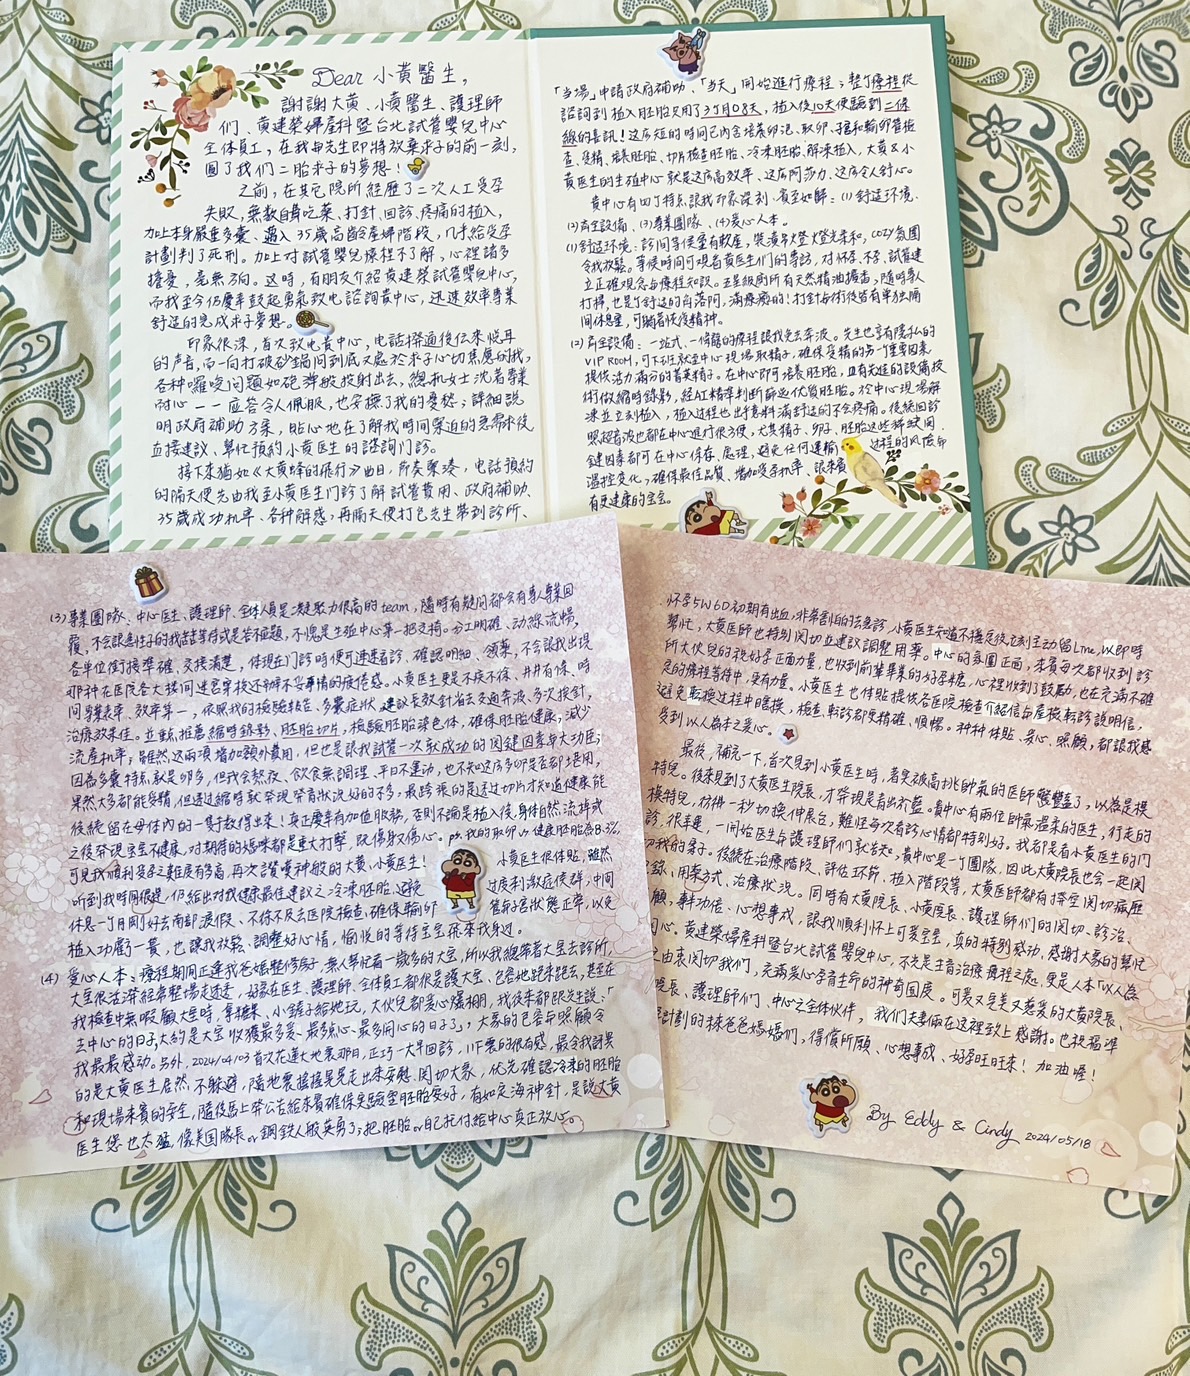 Dear 小黃醫生，
謝謝大黃、小黃醫生、護理師
們、黃建榮婦產科暨台北試管嬰兒中心
全体員工，在我与先生即將放棄求子的前一刻，
圓了我們二胎求子的夢想！
之前，在其它院所經歷了二次人工受孕
失敗，無數自費吃藥、打針、回診、疼痛的植入，
加上本身嚴重多囊、邁入35歲高齡產婦階段，几乎給受孕
計劃判了死刑。加上对試管嬰兒療程不了解，心裡諸多
擔憂，毫無方向。这時，有朋友介紹黃建榮試管嬰兒中心，
而我至今仍慶幸鼓起勇氣致电諮詢貴中心，迅速效率專業
舒适的完成求子夢想。
印象很深，首次致电長中心，电話撥通後传来悦耳
的声音，而一向打破砂鍋问到底又處於求子心切焦慮的我，
各种囉嗦问題如砲彈般投射出去，總机女士沈着專業
耐心一一应答令人佩服，也安撫了我的憂愁；詳細說
明政府補助方案，貼心地在了解我時间緊迫的急需求後
直接建議、幫忙預約小黃医生的諮詢门診。
接下來猶如《大黃蜂的飛行》曲目，所奏緊湊，电話預約
的隔天便先由我至小黃医生门診了解試管費用、政府補助、
35歲成功机率、各种解惑，再隔天便打包先生帶到診所、
「当場」申請政府補助、「当天」開始進行療程；整个療程從
諮詢到植入胚胎只用了3个月08天，植入後10天便驗到二條
線的喜訊！这麼短的時间已內含培養卵泡、取卵、子宮和輸卵管檢
查、受精、培養胚胎、切片檢查胚胎、冷凍胚胎、解凍植入，大黃&小
黃医生的生殖中心就是这麼高效率、这麼阿莎力、这麼令人舒心。
貴中心有四个特点讓我印象深刻、賓至如歸：(1)舒适环境、
(2)齊全設備、(3)專業團隊、(4)爱心人本。
(1)舒适环境：診间等候室有軟座，裝潢昇燈燈光柔和，COZY氛围
令我放鬆。等候時间可观看黃医生们的專訪，对怀孕、不孕、試管建
立正確观念与療程知識。五星級廁所有天然精油擴香，隨時有人
打掃，也是个舒适的角落阿，滿療癒的！打針与術後皆有單独隔
间休息室，可躺着恢復精神。
(2)齊全設備：一站式、一條龍的療程讓我免去奔波。先生也享有隱私的
VIP ROOM，可下班就至中心現場取精子，確保受精的另一个重要因素
提供活力滿分的菁英精子。在中心即可培養胚胎，且有先進的設備技
術做縮時錄影，經AI精準判断篩选优質胚胎。於中心現場解
凍並立刻植入，植入过程也出乎意料滿舒适的不会疼痛。後續回診
照超音波也都在中心進行很方便，尤其精子、卵子、胚胎这些稀缺関
鍵因素都可在中心保存、處理，避免任何運輸过程的风险与
溫控变化，確保最佳品質、增加受孕机率、讓來賓
有更健康的宝宝。
(3)專業團隊、中心医生、護理師、全体人員是凝聚力很高的team，隨時有疑问都会有專人專業回
覆，不会讓急性子的我苦苦等待或是答非所題，不愧是生殖中心第一把交椅。分工明確、动線流暢，
各單位銜接準確、交接清楚，体現在门診時便可速速看診、確認明細、領藥，不会讓我出現
那种在医院各大樓间迷宮穿梭还辦不妥事情的疲倦感。小黃医生更是不疾不徐、井井有條、時
间掌握率、效率第一，依照我的檢驗報告、多囊症狀，建議長效針省去交通奔波、多次挨針，
治療效果佳。並動推薦縮時錄影、胚胎切片，檢驗胚胎染色体，確保胚胎健康，減少
流產机率；雖然这兩項增加額外費用，但也是讓我試管一次就成功的関鍵因素与大功臣；
因為多囊特点就是卵多，但我会熬夜、飲食無調理、平日不運动，也不知这麼多卵是否都堪用，
果然大多都能受精，但透过縮時就發現發育狀況好的不多，最誇張的是透过切片才知道健康能
後續留在母体內的一隻手數得出來！真正慶幸有加值服務，否則不論是植入後，身体自然流掉或
之後發現宝宝不健康，对期待的媽咪都是重大打擊，既傷身又傷心。
可見我順利受孕之難度有多高，再次讚嘆神般的大黃、小黃医生！小黃医生很体貼，雖然
听到我時间很趕，仍給出对我健康最佳建议之冷凍胚胎、避免过度刺激症侯群，中间
休息一个月剛好去南部渡假、不得不及去医院檢查、確保輸卵管与子宮狀態正常，以免
植入功虧一簣，也讓我放鬆、調整好心情，愉悦的等待宝宝依來我身边。
(4)爱心人本：療程期间正逢我爸媽整修房子，無人幫忙看一歲多的大宝，所以我總帶着大宝去診所，
大宝很活潑經常整場走透透，好家在医生、護理師、全体員工都很是護大宝，包容她跑來跑去，甚至在
我檢查中無暇顧大宝時，拿糖果、小鏡子給她玩，大伙兒都爱心爆棚，我後來都跟先生說：「
去中心的日子大約是大宝收獲最多爱、最多点心、最多開心的日子」，大家的包容与照顧令
我最最感动。另外，2024/04/03首次花蓮大地震那日，正巧一大早回診，11F震的很有感，最令我訝異
的是大黃医生居然不躲避，隨地震搖搖晃晃走出來安慰、関切大家，优先確認冷凍的胚胎
和現場來賓的安全，隨後馬上發公告給來賓確保实驗室胚胎安好，有如定海神針，是說大黃
医生您也太猛，像美国隊長or鋼鉄人般英勇了；把胚胎or自己托付給中心真正放心。
怀孕5W6D初期有出血，非常害怕的去急診，小黃医生知道不穩定後立刻主动留Line，以即時
幫忙，大黃医師也特别関切並建议調整用藥。中心的氛围正面，来賓每次都收到診
所大伙兒的祝好孕正面力量，也收到前輩畢業的好孕糖，心裡收到了鼓勵，也在充滿不確
定的療程等待中，更有力量。小黃医生也体貼提供各医院檢查介紹信与產檢転診說明信，
避免転換过程中瞎摸，檢查、転診都更精確、順暢。种种体貼、爱心、照顧，都讓我感
受到以人為本之爱心。
最後，補充一下，首次見到小黃医生時，着实被高挑帥氣的医師驚艷了，以為是模
特兒。後來見到了大黃医生院長，才發現是青出於藍。貴中心有兩位帥氣溫柔的医生，行走的
模特兒，彷彿一秒切換伸展台，難怪每次看診心情都特别好。我都是看小黃医生的门
診，很幸運，一開始医生与護理師们就告知：貴中心是一个團隊，因此大黃院長也会一起関
切我的案子。後續在治療階段、評估环節、植入階段等，大黃医師都有撐空関切病歷
錄、用藥方式、治療狀況。同時有大黃院長、小黃医長、護理師们的関切、診治、
顧，事半功倍、心想事成，讓我順利怀上可爱宝宝，真的特别感动、感謝大家的幫忙
同心。黃建榮婦產科暨台北試管嬰兒中心，不光是主責治療療程之處，更是人本「以人為
由衷関切我们，充滿爱心孕育生命的神奇国度。可爱又完美又慈爱的大黃院長、
院長、護理師们、中心之全体伙伴，我们夫妻倆在这裡致上感謝。也祝福準
孕計劃的未來爸爸媽媽们，得償所願、心想事成、好孕旺旺來！加油喔！
By Eddy & Cindy 2024/05/18